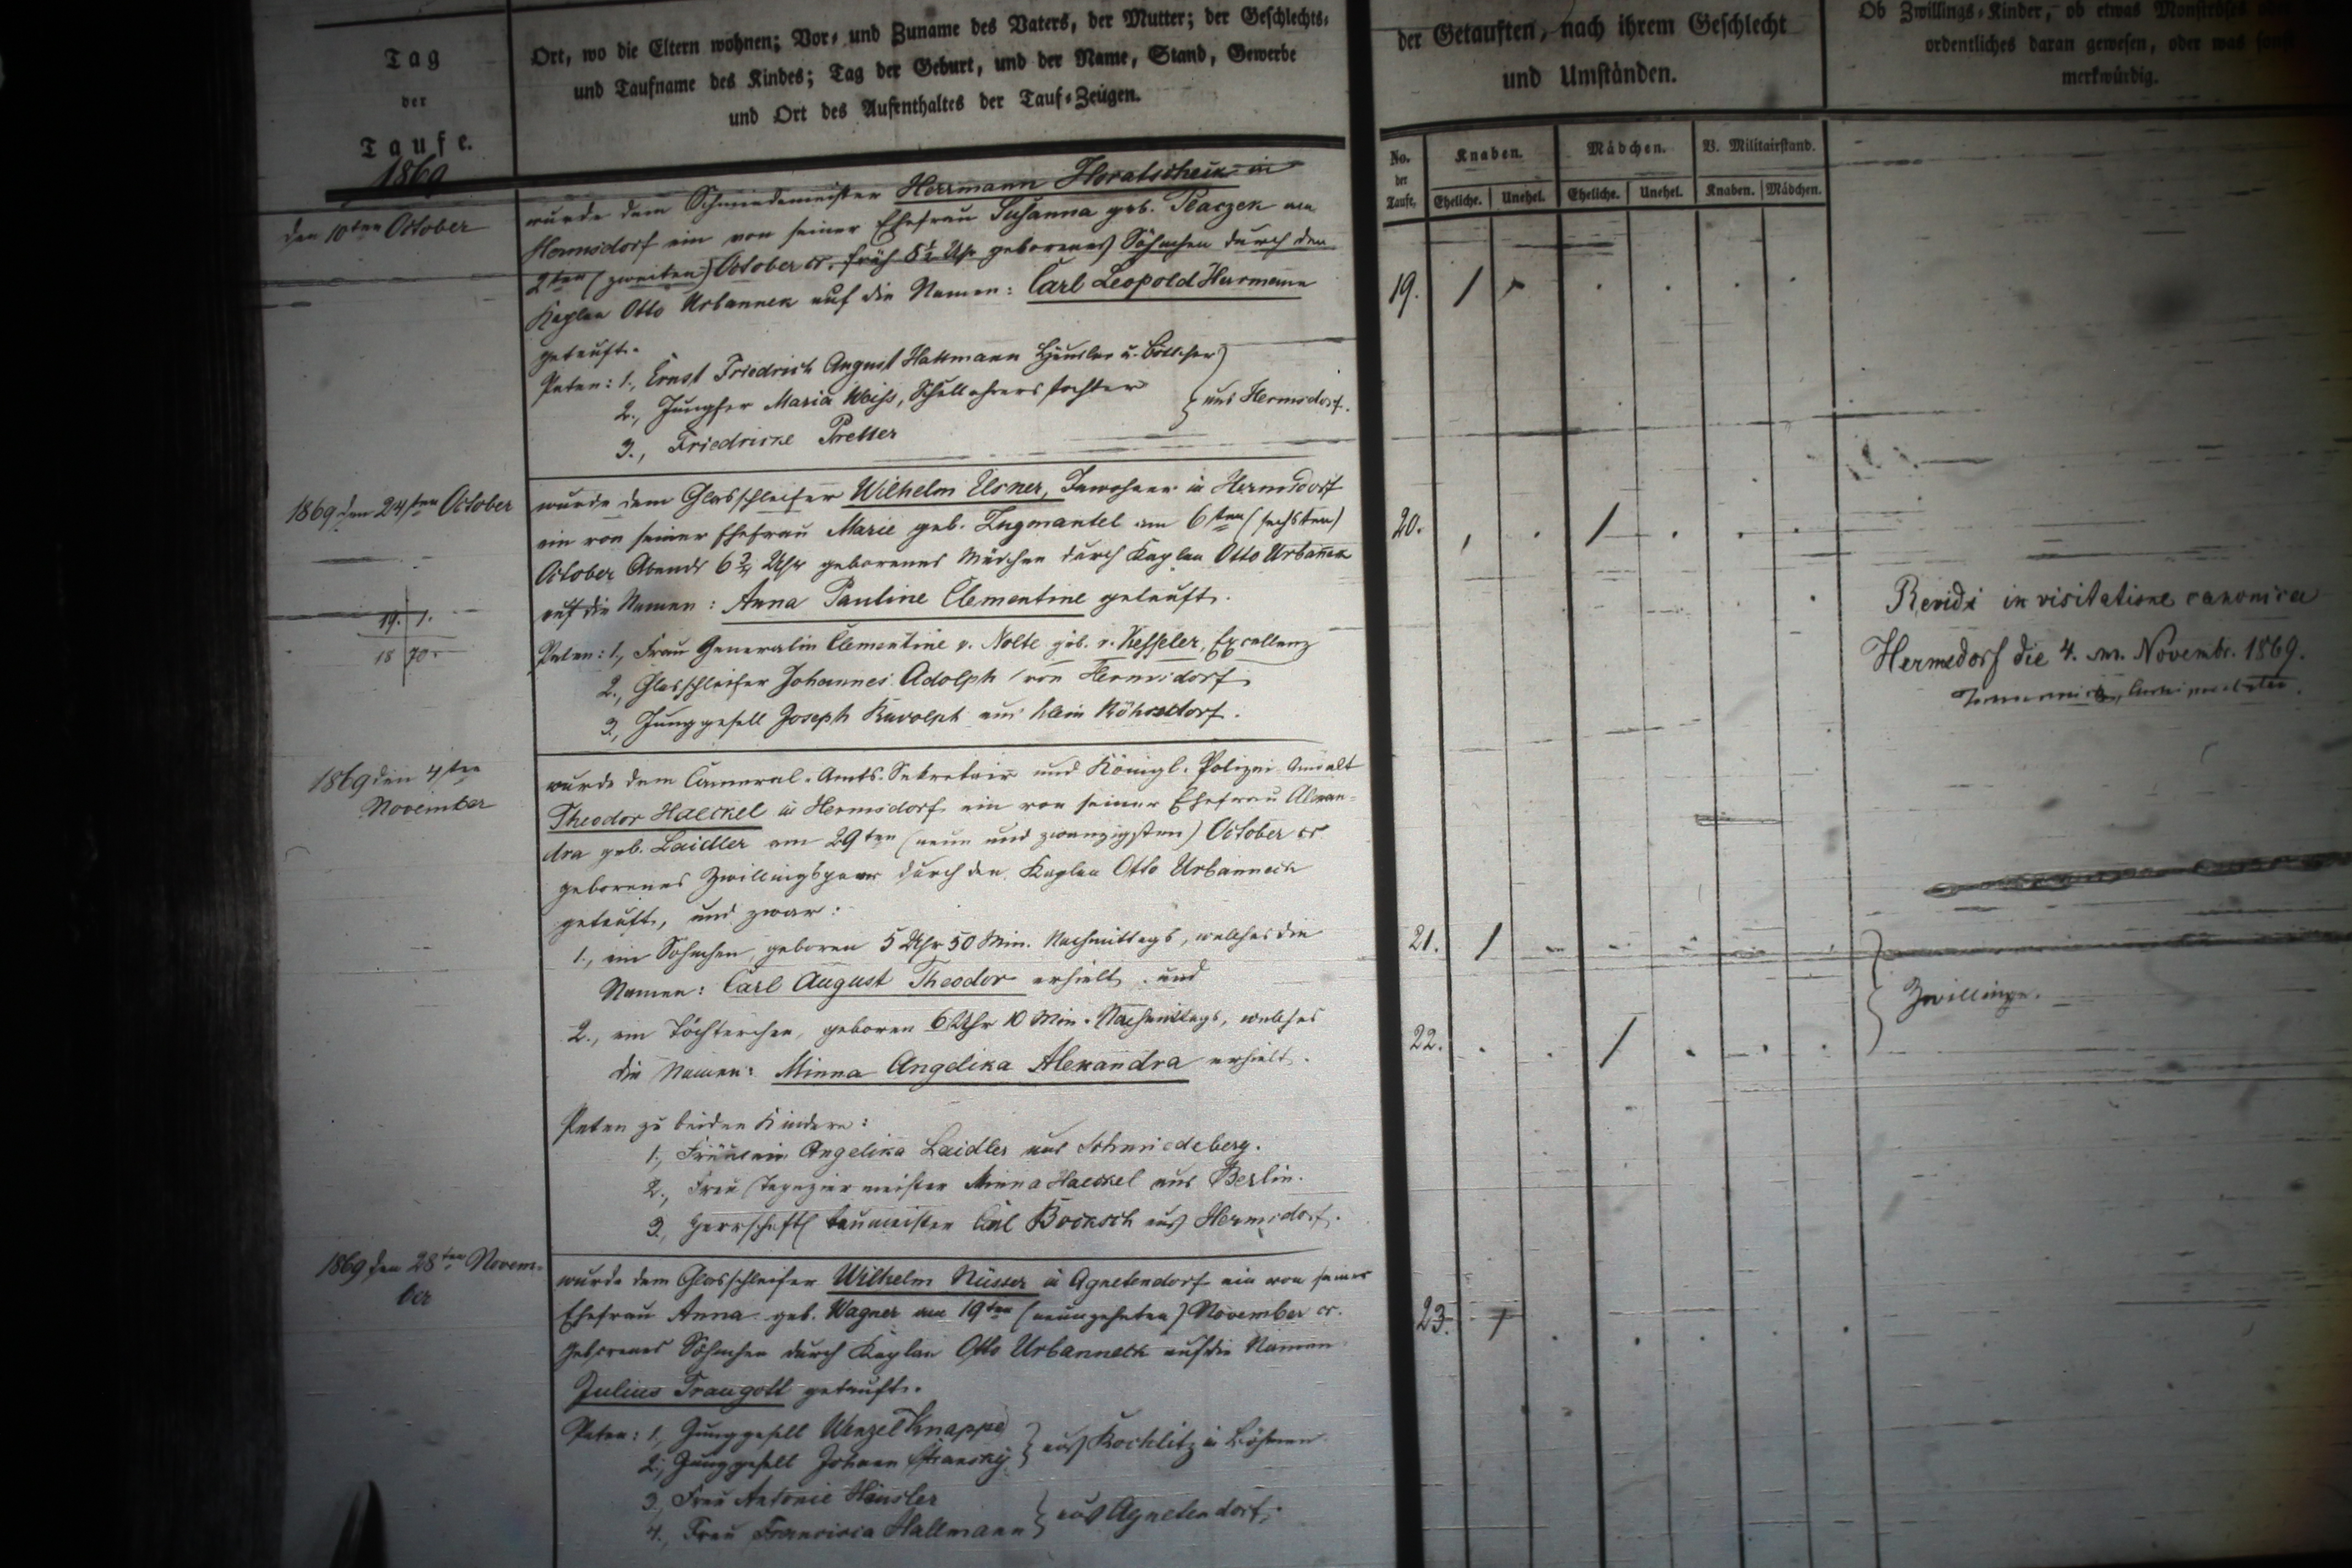 Tag
der
Taufe.
1869
Ort, wo die Eltern wohnen; Vor- und Zuname des Vaters, der Mutter; der Geschlechts-
und Taufname des Kindes; Tag der Geburt, und der Name, Stand, Gewerbe
und Ort des Aufenthaltes der Tauf-Zeugen.
der Getauften, nach ihrem Geschlecht
und Umständen.
Ob Zwillings-Kinder, ob etwas Monströses
ordentliches daran gewesen, oder was sonst
merkwürdig.
No. der Taufe.
Knaben. Mädchen. V. Militairstand.
Eheliche. Unehel. Eheliche. Unehel. Knaben. Mädchen.
den 10ten October
wurde dem Schmiedemeister Herrmann Horatscheck in
Hermsdorf ein von seiner Ehefrau Susanna geb. am
2ten (zweiten) October cr. früh Uhr geborenes Söhnchen durch den
Kaplan Otto Urbanneck auf die Namen: Carl Leopold Hermann
getauft.
19. /
Paten: 1., Ernst Friedrich August Häusler u. Böttcher
2., Jungfer Maria Weiss, Schullehrers tochter
3., Friedricke
aus Hermsdorf.
1869 den 24ten October
wurde dem Glasschleifer Wilhelm Elsner, Inwohner in Hermsdorf
ein von seiner Ehefrau Marie geb. am 6ten (sechsten)
October Abends 6 3/4 Uhr geborenes Mädchen durch Kaplan Otto Urbanneck
auf die Namen: Anna Pauline Clementine getauft.
20. /
19. 1.
18 70
Paten: 1., Frau Generalin Clementine v. Nolte geb. v. Kessler, Excellenz
2., Glasschleifer Johannes Adolph von Hermsdorf
3., Junggesell Joseph aus Klein Röhrsdorf.
Revidi in visitatione canonica
Hermsdorf die 4. m. Novembr. 1869.
1869 den 4ten
November
wurde dem Cameral-Amts-Sekretair und Königl. Polizei-Anwalt
Theodor Haeckel in Hermsdorf ein von seiner Ehefrau
dra geb. Laidler am 29ten (neun und zwanzigsten) October cr
geborenes Zwillingspaar durch den Kaplan Otto Urbanneck
getauft, und zwar:
1., ein Söhnchen, geboren 5 Uhr 50 Min. Nachmittags, welches die
Namen: Carl August Theodor erhielt, und
21. /
2., ein Töchterchen, geboren 6 Uhr 10 Min. Nachmittags, welches
die Namen: Minna Angelika Alexandra erhielt.
22. /
Zwillinge.
Paten zu beiden Kindern:
1., Fräulein Angelika Laidler aus Schmiedeberg.
2., Frau Tapezier meister Minna Haeckel aus Berlin.
3., Herrschaftl. Baumeister Carl Bocksch aus Hermsdorf.
1869 den 28ten Novem-
ber
wurde dem Glasschleifer Wilhelm Nüsser in Agnetendorf ein von seiner
Ehefrau Anna geb. Wagner am 19ten (neunzehnten) November cr.
geborenes Söhnchen durch Kaplan Otto Urbanneck auf die Namen
Julius Traugott getauft.
23. /
Paten: 1., Junggesell Wenzel Knappe
2., Junggesell Johann Stransky
aus Kochlitz in Böhmen
3., Frau Antonie Häusler
4., Frau Francisca Hallmann
aus Agnetendorf.